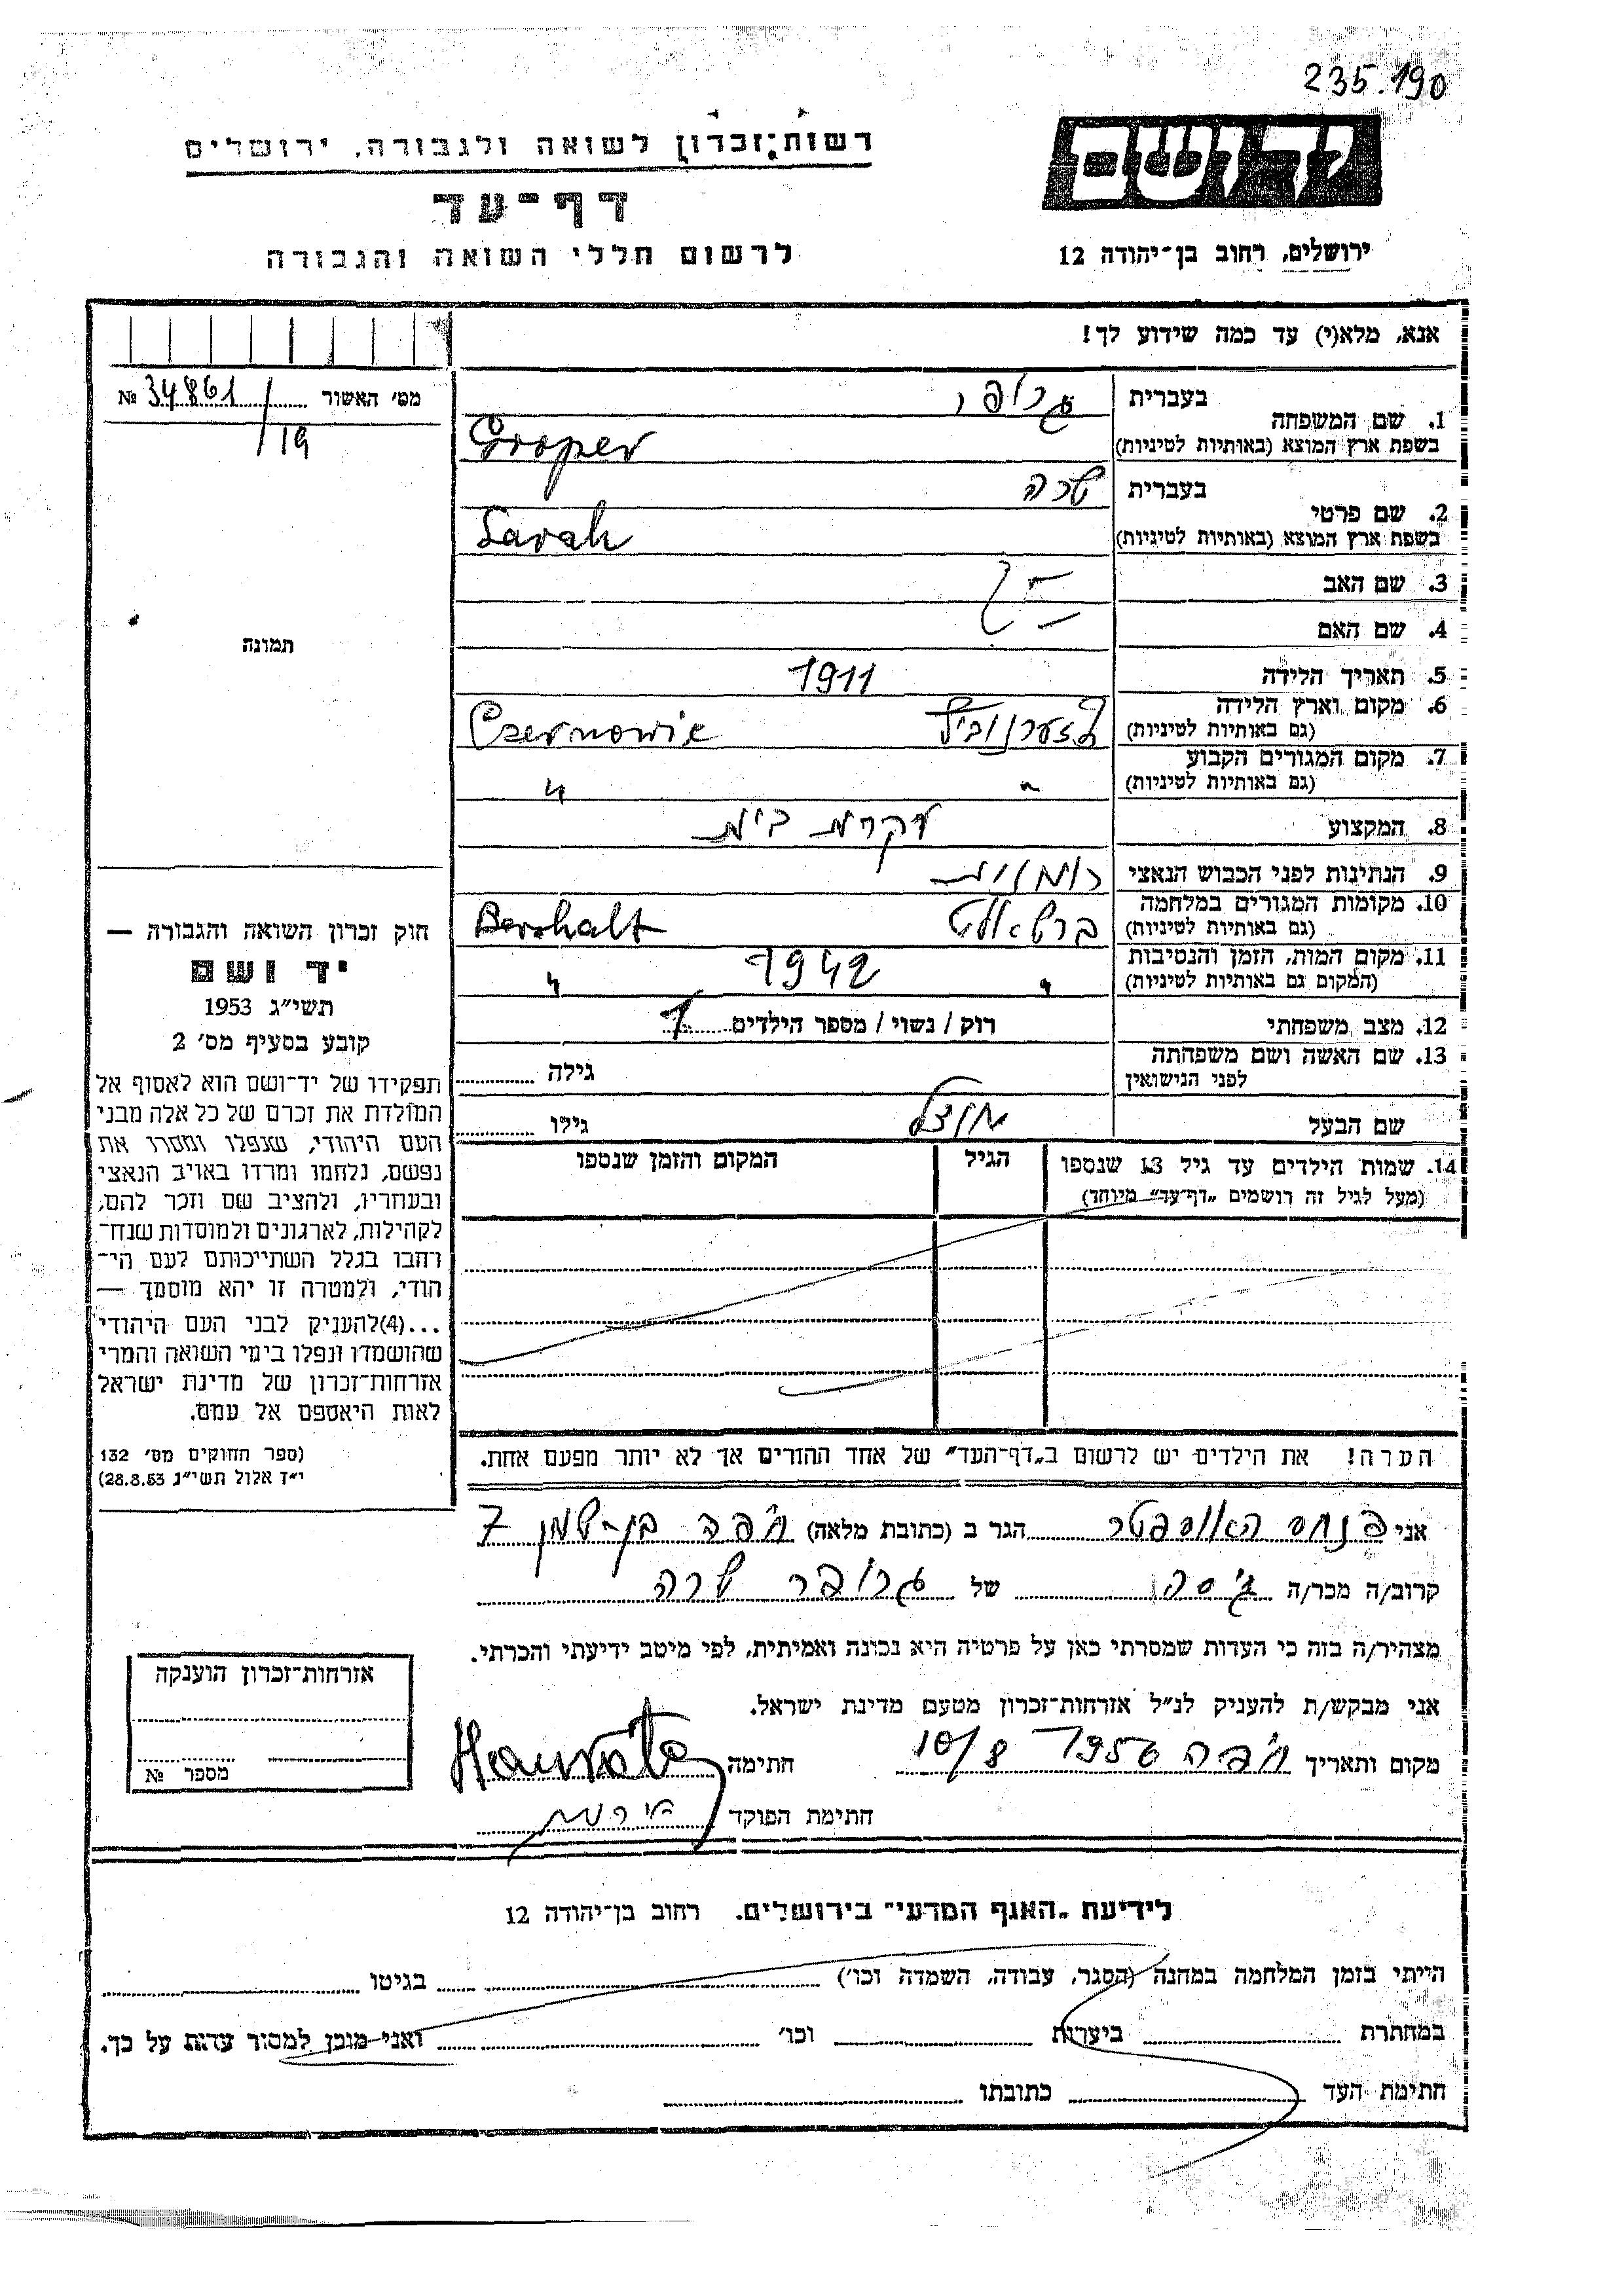 235.190
יד ושם
רשות־זכרון לשואה ולגבורה, ירושלים
דף־עד
לרשום חללי השואה והגבורה
ירושלים, רחוב בן־יהודה 12
אנא, מלא(י) עד כמה שידוע לך!
מס׳ האשור № 34861/19
תמונה
1. שם המשפחה
בעברית גרופר
בשפת ארץ המוצא (באותיות לטיניות) Groper
2. שם פרטי
בעברית שרה
בשפת ארץ המוצא (באותיות לטיניות) Sarah
3. שם האב
4. שם האם
5. תאריך הלידה 1911
6. מקום וארץ הלידה
(גם באותיות לטיניות) Czernowic
7. מקום המגורים הקבוע
(גם באותיות לטיניות) " "
8. המקצוע עקרת בית
9. הנתינות לפני הכבוש הנאצי רומנית
10. מקומות המגורים במלחמה
(גם באותיות לטיניות) Bershalt
11. מקום המות, הזמן והנסיבות
(המקום גם באותיות לטיניות) " 1942 "
12. מצב משפחתי רוק / נשוי / מספר הילדים 1
13. שם האשה ושם משפחתה
לפני הנישואין גילה
שם הבעל גילו
14. שמות הילדים עד גיל 13 שנספו הגיל המקום והזמן שנספו
(מעל לגיל זה רושמים „דף־עד״ מיוחד)
חוק זכרון השואה והגבורה —
יד ושם
תשי״ג 1953
קובע בסעיף מס׳ 2
תפקידו של יד־ושם הוא לאסוף אל
המולדת את זכרם של כל אלה מבני
העם היהודי, שנפלו ומסרו את
נפשם, נלחמו ומרדו באויב הנאצי
ובעוזריו, ולהציב שם וזכר להם,
לקהילות, לארגונים ולמוסדות שנח־
רחבו בגלל השתייכותם לעם הי־
הודי, ולמטרה זו יהא מוסמך —
...(4)להעניק לבני העם היהודי
שהושמדו ונפלו בימי השואה והמרי
אזרחות־זכרון של מדינת ישראל
לאות היאספם אל עמם.
(ספר החוקים מס׳ 132
י״ז אלול תשי״ג 28.8.53)
הערה! את הילדים יש לרשום ב„דף־העד״ של אחד ההורים אך לא יותר מפעם אחת.
אני פנחס הגר ב (כתובת מלאה) חיפה בן־שמן 7
קרוב/ה מכר/ה גיסה של גרופר שרה
מצהיר/ה בזה כי העדות שמסרתי כאן על פרטיה היא נכונה ואמיתית, לפי מיטב ידיעתי והכרתי.
אני מבקש/ת להעניק לנ״ל אזרחות־זכרון מטעם מדינת ישראל.
מקום ותאריך חיפה 1956 10/8 חתימה
חתימת הפוקד
אזרחות־זכרון הוענקה
מספר №
לידיעת „האגף המדעי״ בירושלים. רחוב בן־יהודה 12
הייתי בזמן המלחמה במחנה (הסגר, עבודה, השמדה וכו׳) בגיטו
במחתרת ביערות וכו׳ ואני מוכן למסור עדות על כך.
חתימת העד כתובתו